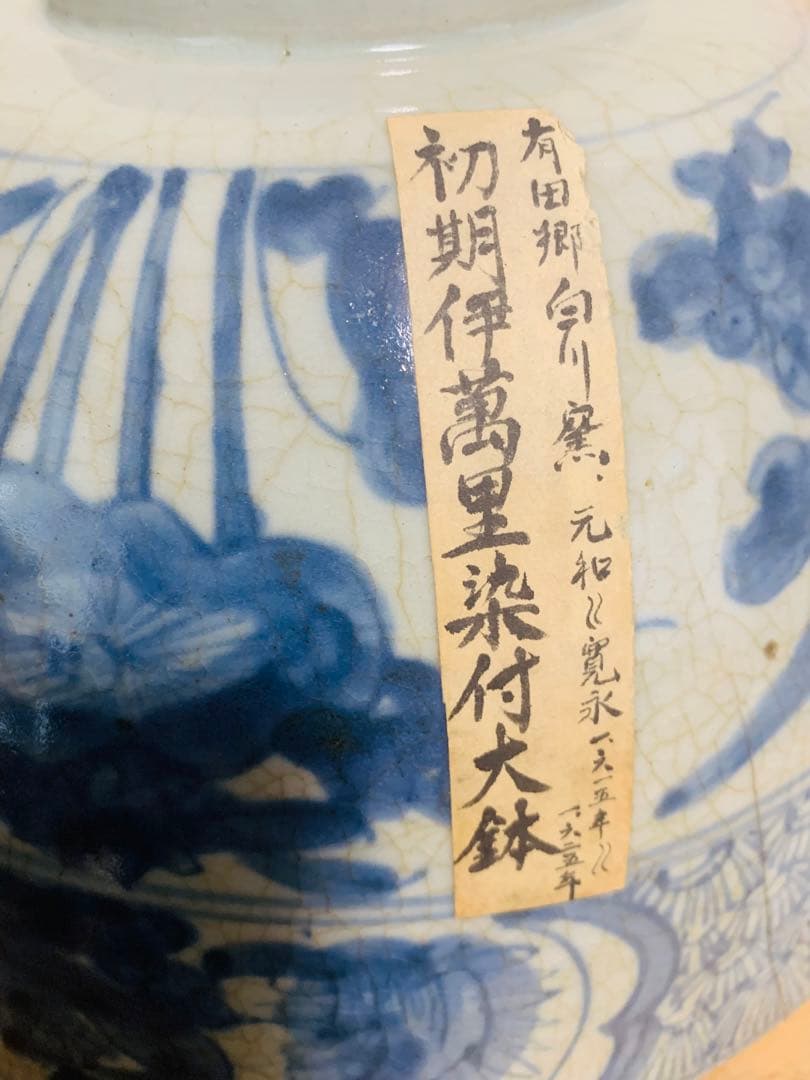 有田郷白川窯、元和〻寛永一、六一五年〻
一、六二五年
初期伊萬里染付大鉢